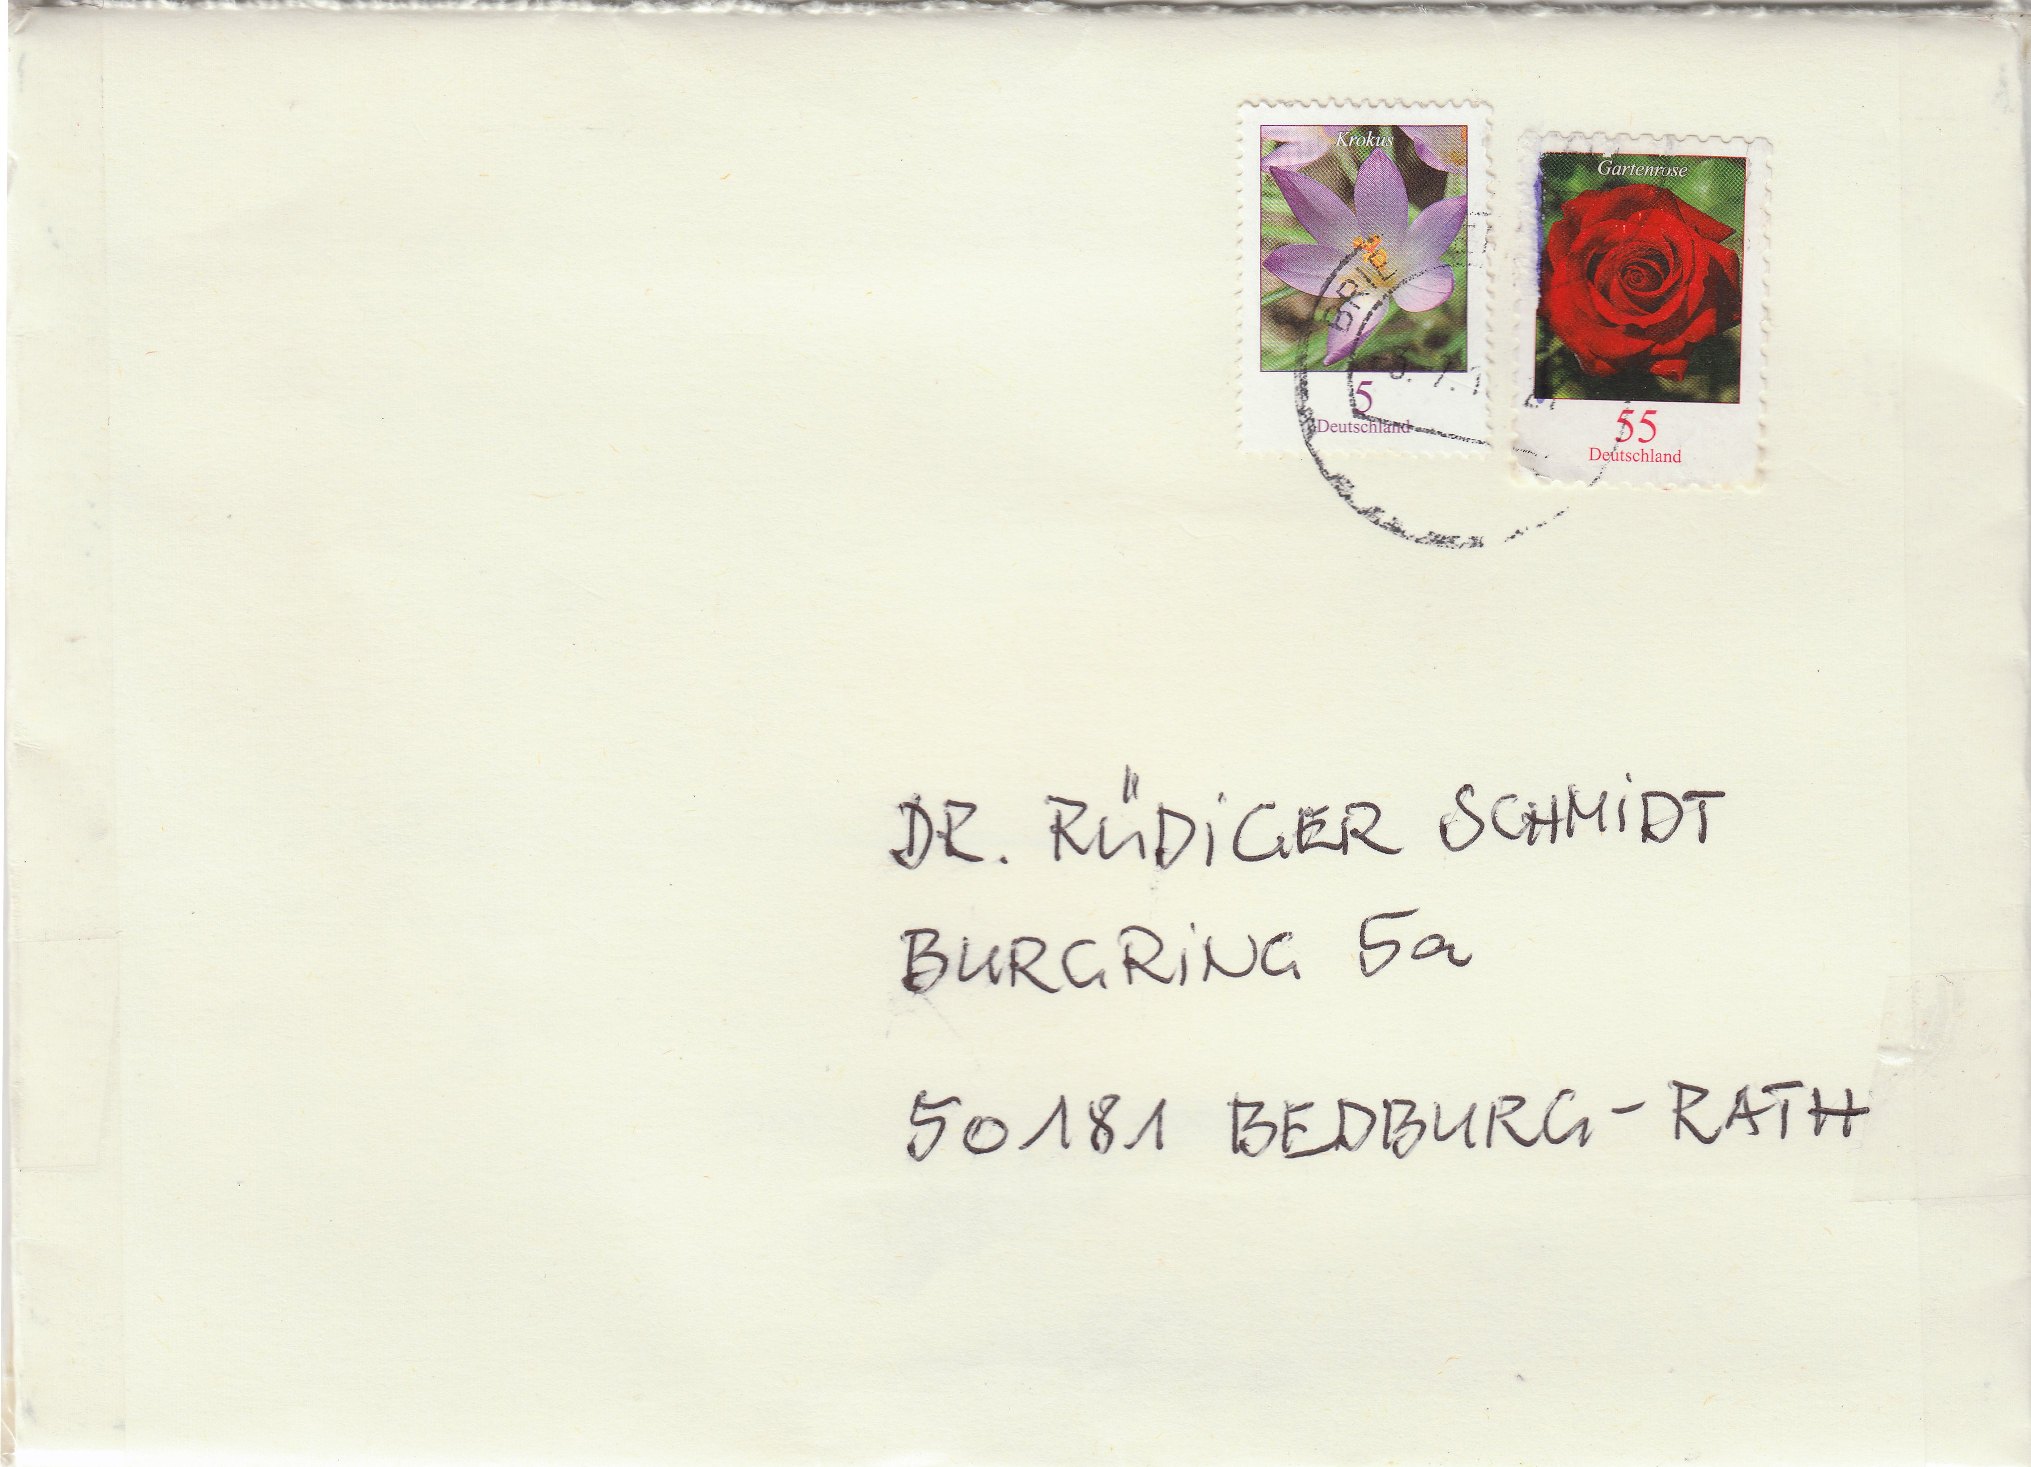 Krokus
5
Deutschland
Gartenrose
55
Deutschland
DR. RÜDiGER SCHMiDT
BURGRiNG 5a
50181 BEDBURG-RATH